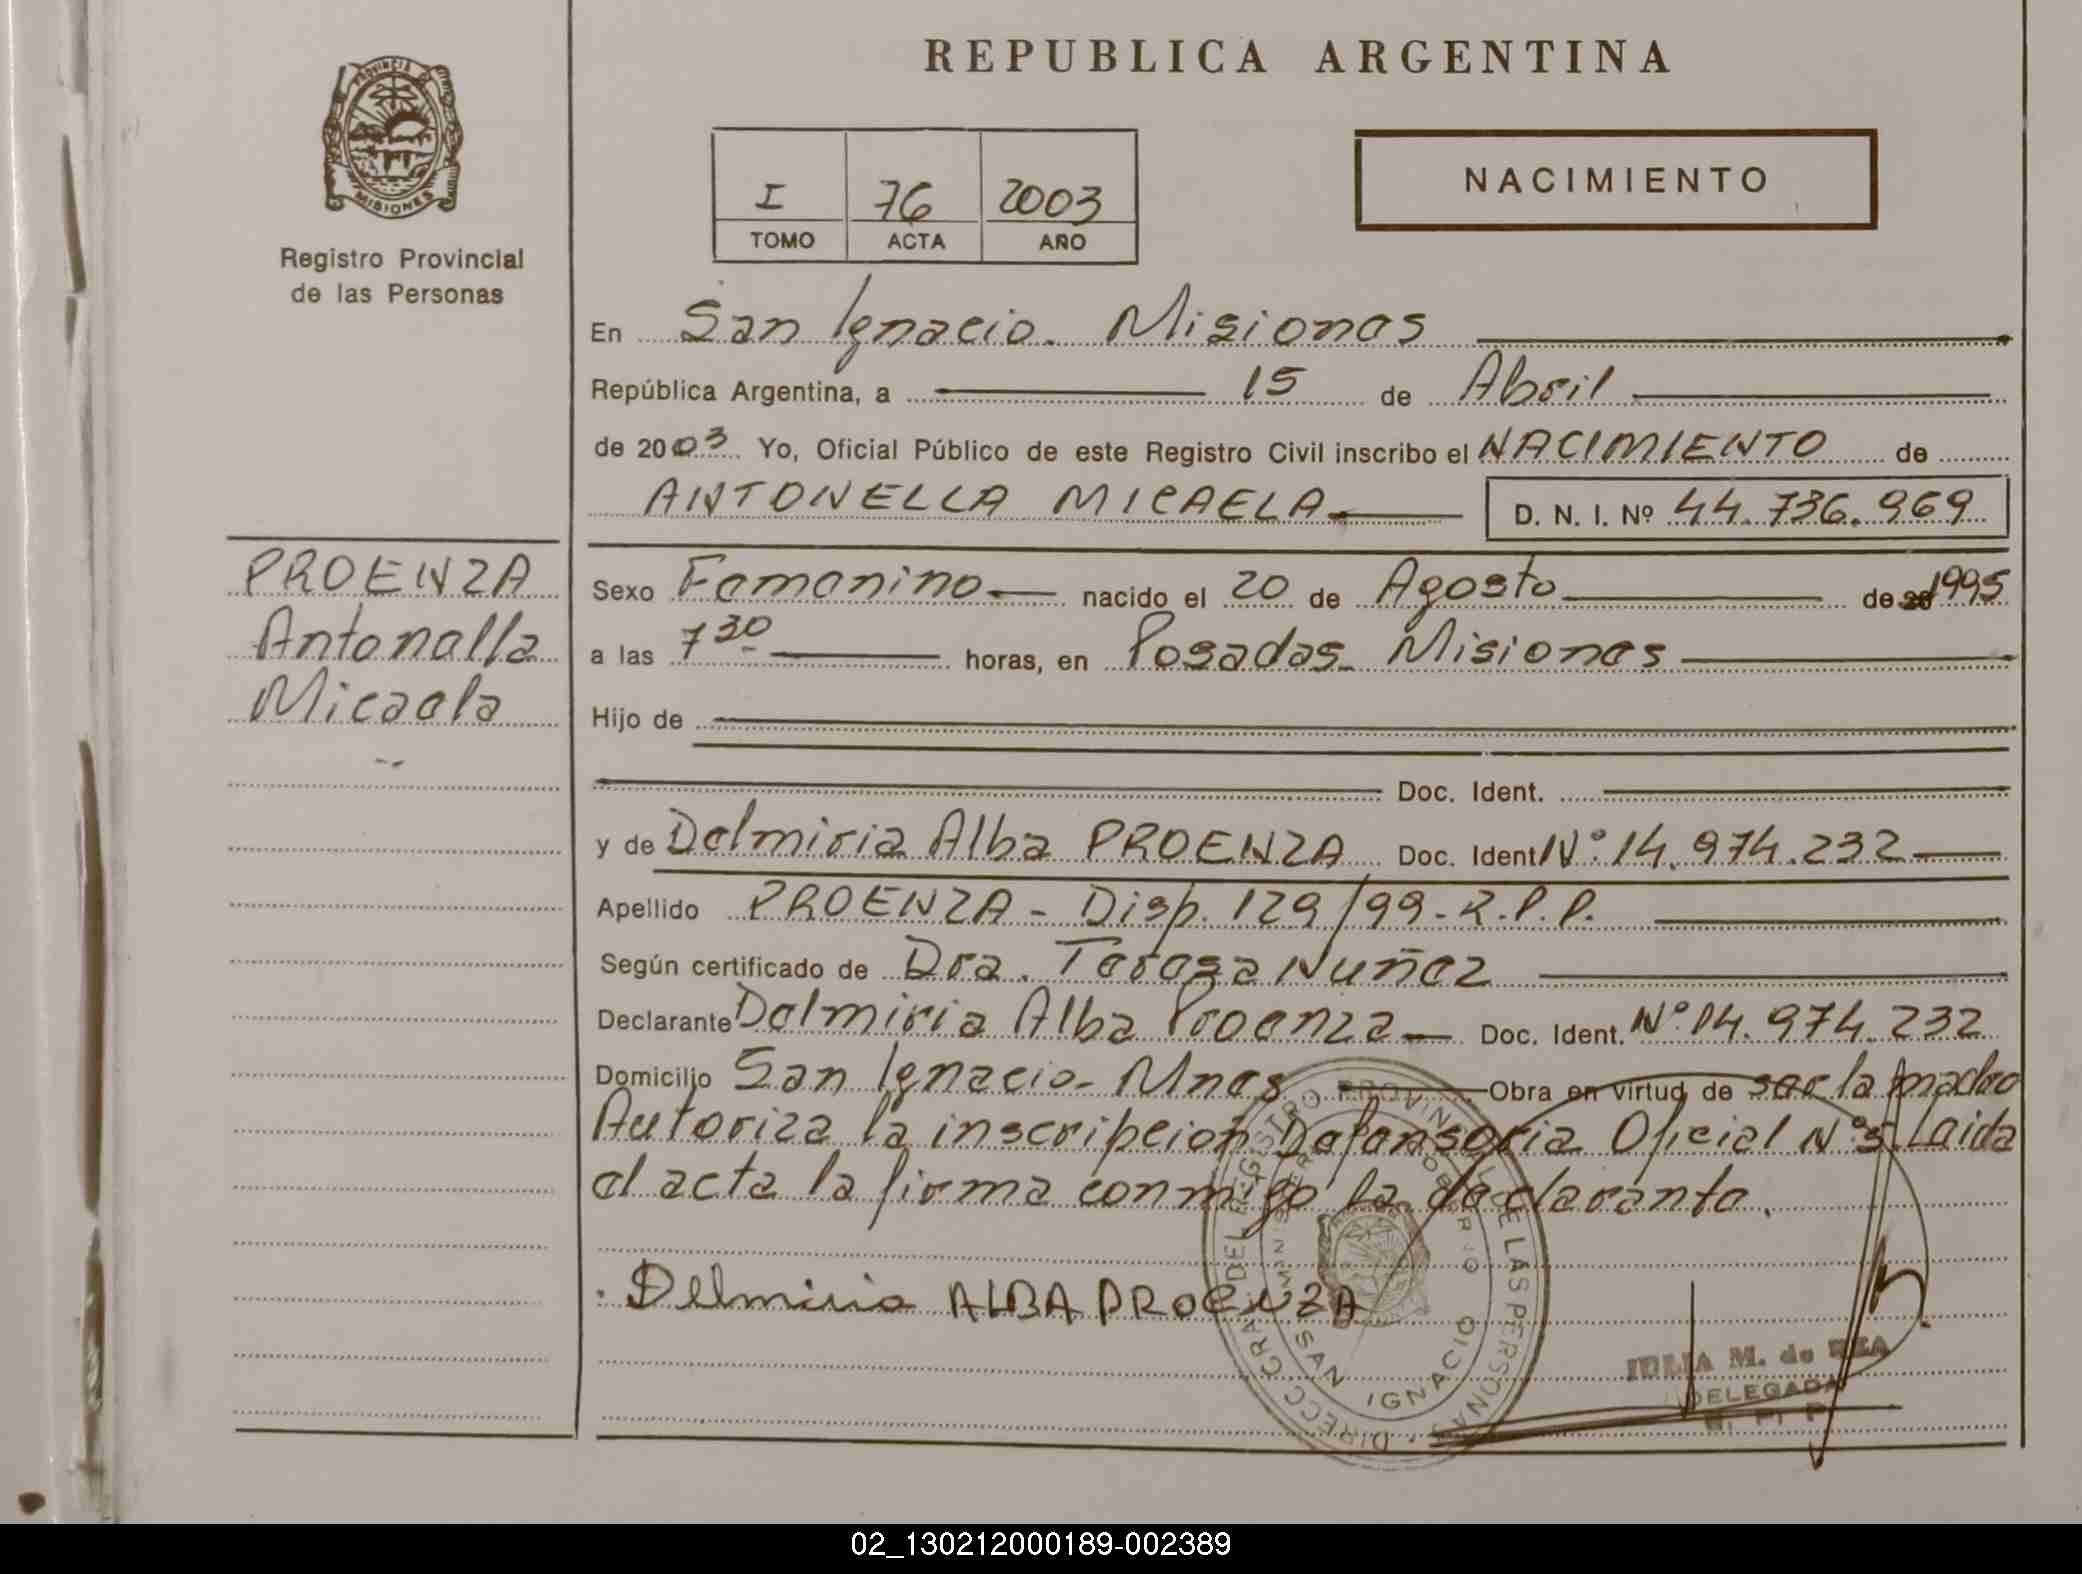 PROVINCIA DE
MISIONES
Registro Provincial
de las Personas
PROENZA
Antonella
Micaela
REPUBLICA ARGENTINA
I 76 2003
TOMO ACTA AÑO
NACIMIENTO
En San Ignacio. Misiones
República Argentina, a 15 de Abril
de 2003 Yo, Oficial Público de este Registro Civil inscribo el NACIMIENTO de
ANTONELLA MICAELA D. N. I. Nº 44.736.969
Sexo Femenino nacido el 20 de Agosto de 1995
a las 7 30 horas, en Posadas Misiones
Hijo de
Doc. Ident.
y de Delmiria Alba PROENZA Doc. Ident Nº 14.974.232
Apellido PROENZA - Disp. 129/99-R.P.P.
Según certificado de Dra. Teresa Nuñez
Declarante Delmiria Alba Proenza Doc. Ident. Nº 14.974.232
Domicilio San Ignacio- Mnes Obra en virtud de ser la madre
Autoriza la inscripcion Defensoria Oficial Nº 5 Leida
el acta la firma conmigo la declarante.
Delmiria ALBA PROENZA
DIRECC GRAL DEL REGISTRO PROVINCIAL DE LAS PERSONAS
MINISTERIO DE GOBIERNO
SAN IGNACIO
JULIA M. de REA
DELEGADA
R. P. P.
02_130212000189-002389